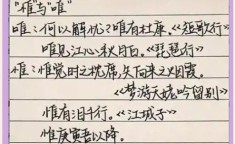 "惟"与"唯"
唯：何以解忧？唯有杜康。《短歌行》
唯见江心秋月白。《琵琶行》
惟：惟觉时之枕席，失向来之烟霞。
《梦游天姥吟留别》
惟有泪千行。《江城子》
惟庚寅吾以降。